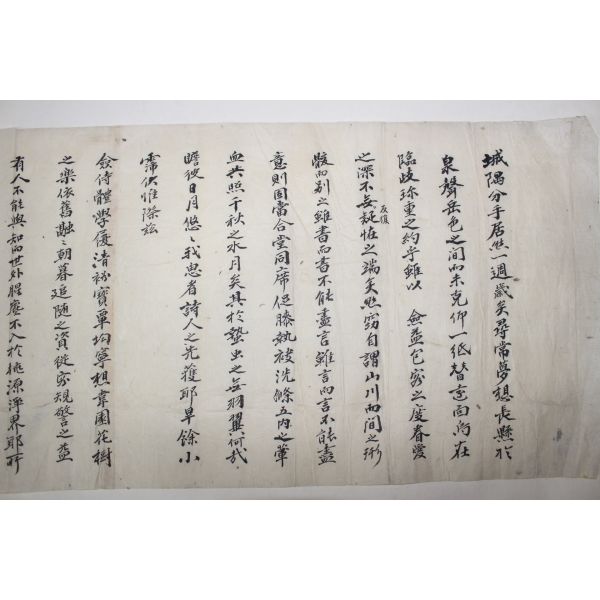 城隅分手居然一週歲矣尋常夢想長懸於
泉聲岳色之間而未克仰一紙替壹面向在
臨歧珍重之約乎雖以 僉益包容之度眷愛
之深不無詫恠之端矣然竊自謂山川而間之術
反復
骸而別之雖書而書不能盡言雖言而言不能盡
意則固當合堂同席促膝執袂洗滌五內之葷
血共照千秋之水月矣其於蟄虫之無羽翼何哉
瞻彼日月悠〻我思者詩人之先獲耶旱餘小
霈伏惟際玆
僉侍體學優清衿寶覃均寧棣韋團花樹
之樂依舊融〻朝暮追隨之資從容規警之益
有人不能與知而世外腥塵不入於桃源淨界耶所